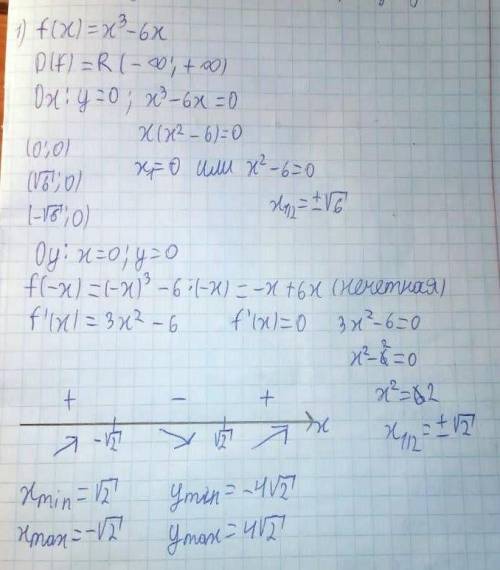 1) f(x)=x³-6x
D(f)=R (-∞; +∞)
Ox: y=0; x³-6x=0
x(x²-6)=0
(0;0)
x₁=0 или x²-6=0
(√6;0)
x₁/₂=±√6
(-√6;0)
Oy: x=0; y=0
f(-x)=(-x)³-6·(-x)=-x+6x (нечетная)
f'(x)=3x²-6 f'(x)=0 3x²-6=0
x²-2=0
x²=2
x₁/₂=±√2
+ - +
-√2 √2 x
xmin=√2 ymin=-4√2
xmax=-√2 ymax=4√2